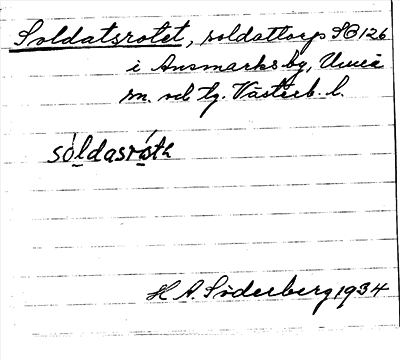 Soldatsrotet, soldattorp SB 126
i Ansmarks by, Umeå
sn. och tg. Västerb. l.
sóldasrótε
H A. Söderberg 1934